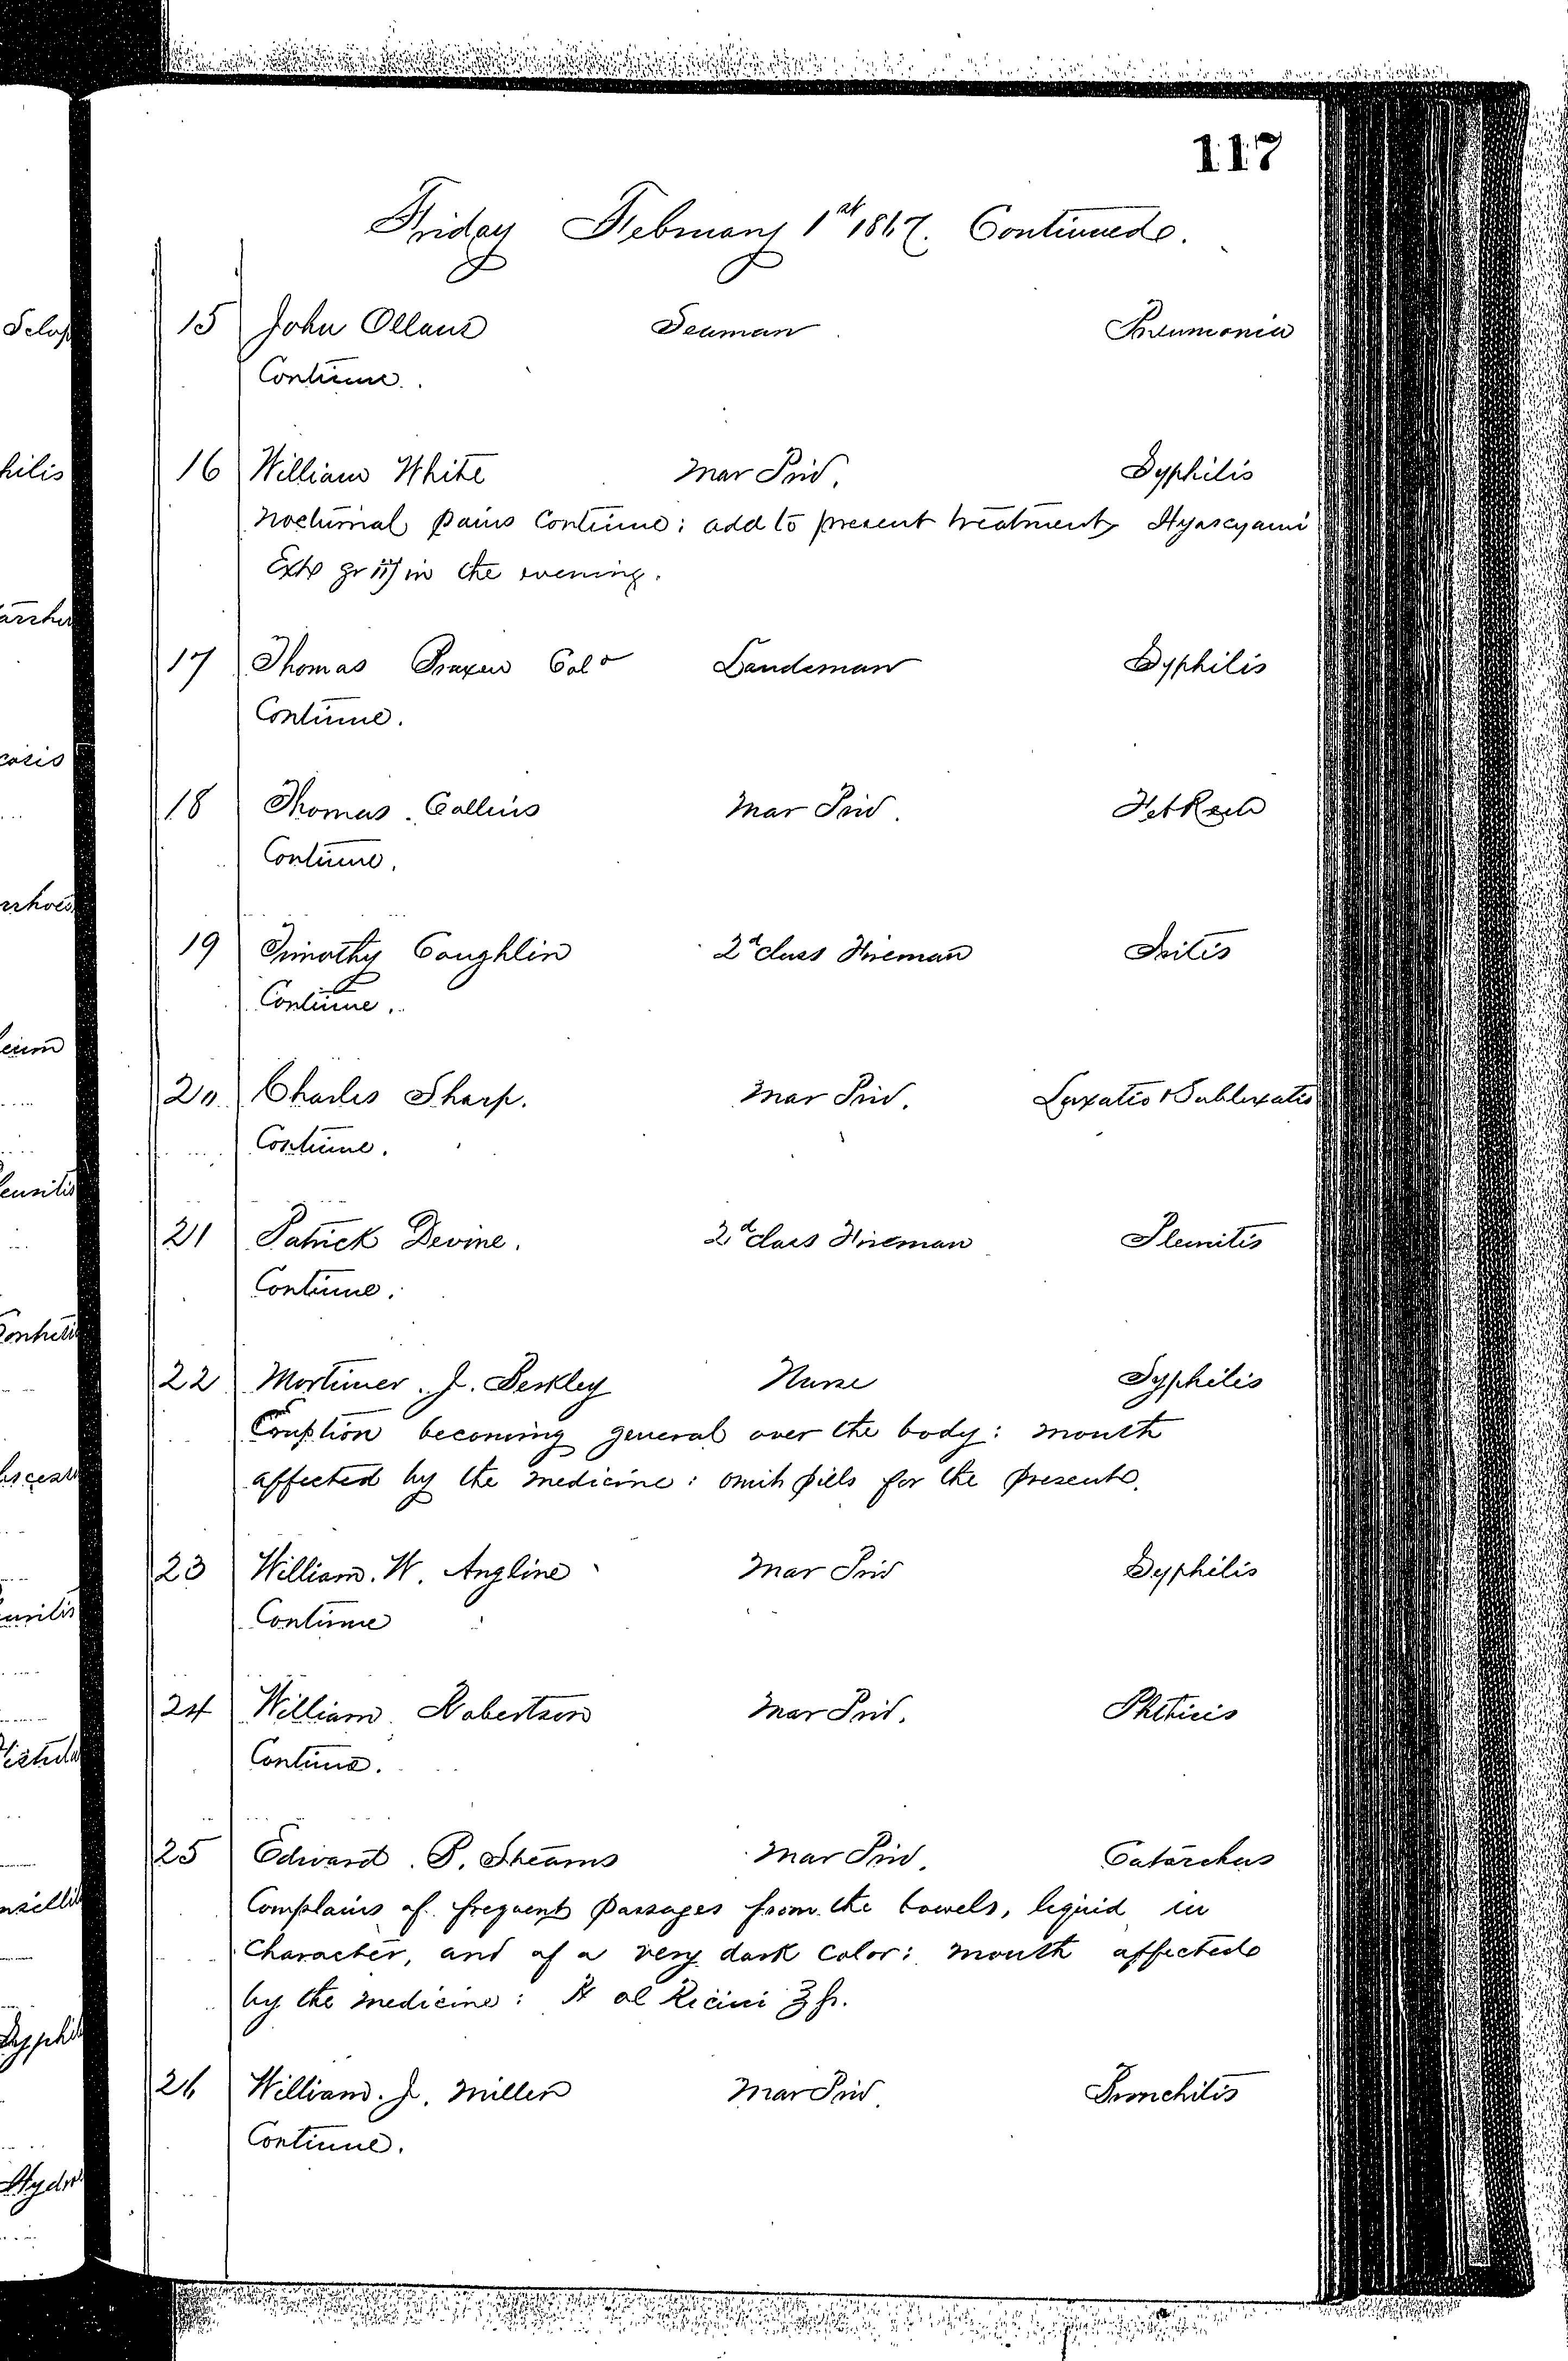 117
Friday February 1st 1867. Continued.
15 John Ollaus Seaman Pneumonia
Continue.
16 William White Mar Priv. Syphilis
Nocturnal pains continue; add to present treatment Hyoscyami
Ext gr iij in the evening.
17 Thomas Col'd Landsman Syphilis
Continue.
18 Thomas Collins Mar Priv. Feb Rem
Continue.
19 Timothy Coughlin 2d class Fireman Iritis
Continue.
20 Charles Sharp. Mar Priv. Luxatio & Subluxatio
Continue.
21 Patrick Devine. 2d class Fireman Pleuritis
Continue.
22 Mortimer. J. Berkley Nurse Syphilis
Eruption becoming general over the body: mouth
affected by the medicine: omit pills for the present.
23 William. W. Angline Mar Priv Syphilis
Continue
24 William Robertson Mar Priv. Phthisis
Continue.
25 Edward. P. Stearns Mar Priv. Catarrhus
Complains of frequent passages from the bowels, liquid in
character, and of a very dark color: mouth affected
by the medicine: ℞ ol Ricini ℥ fs.
26 William. J. Miller Mar Priv. Bronchitis
Continue.